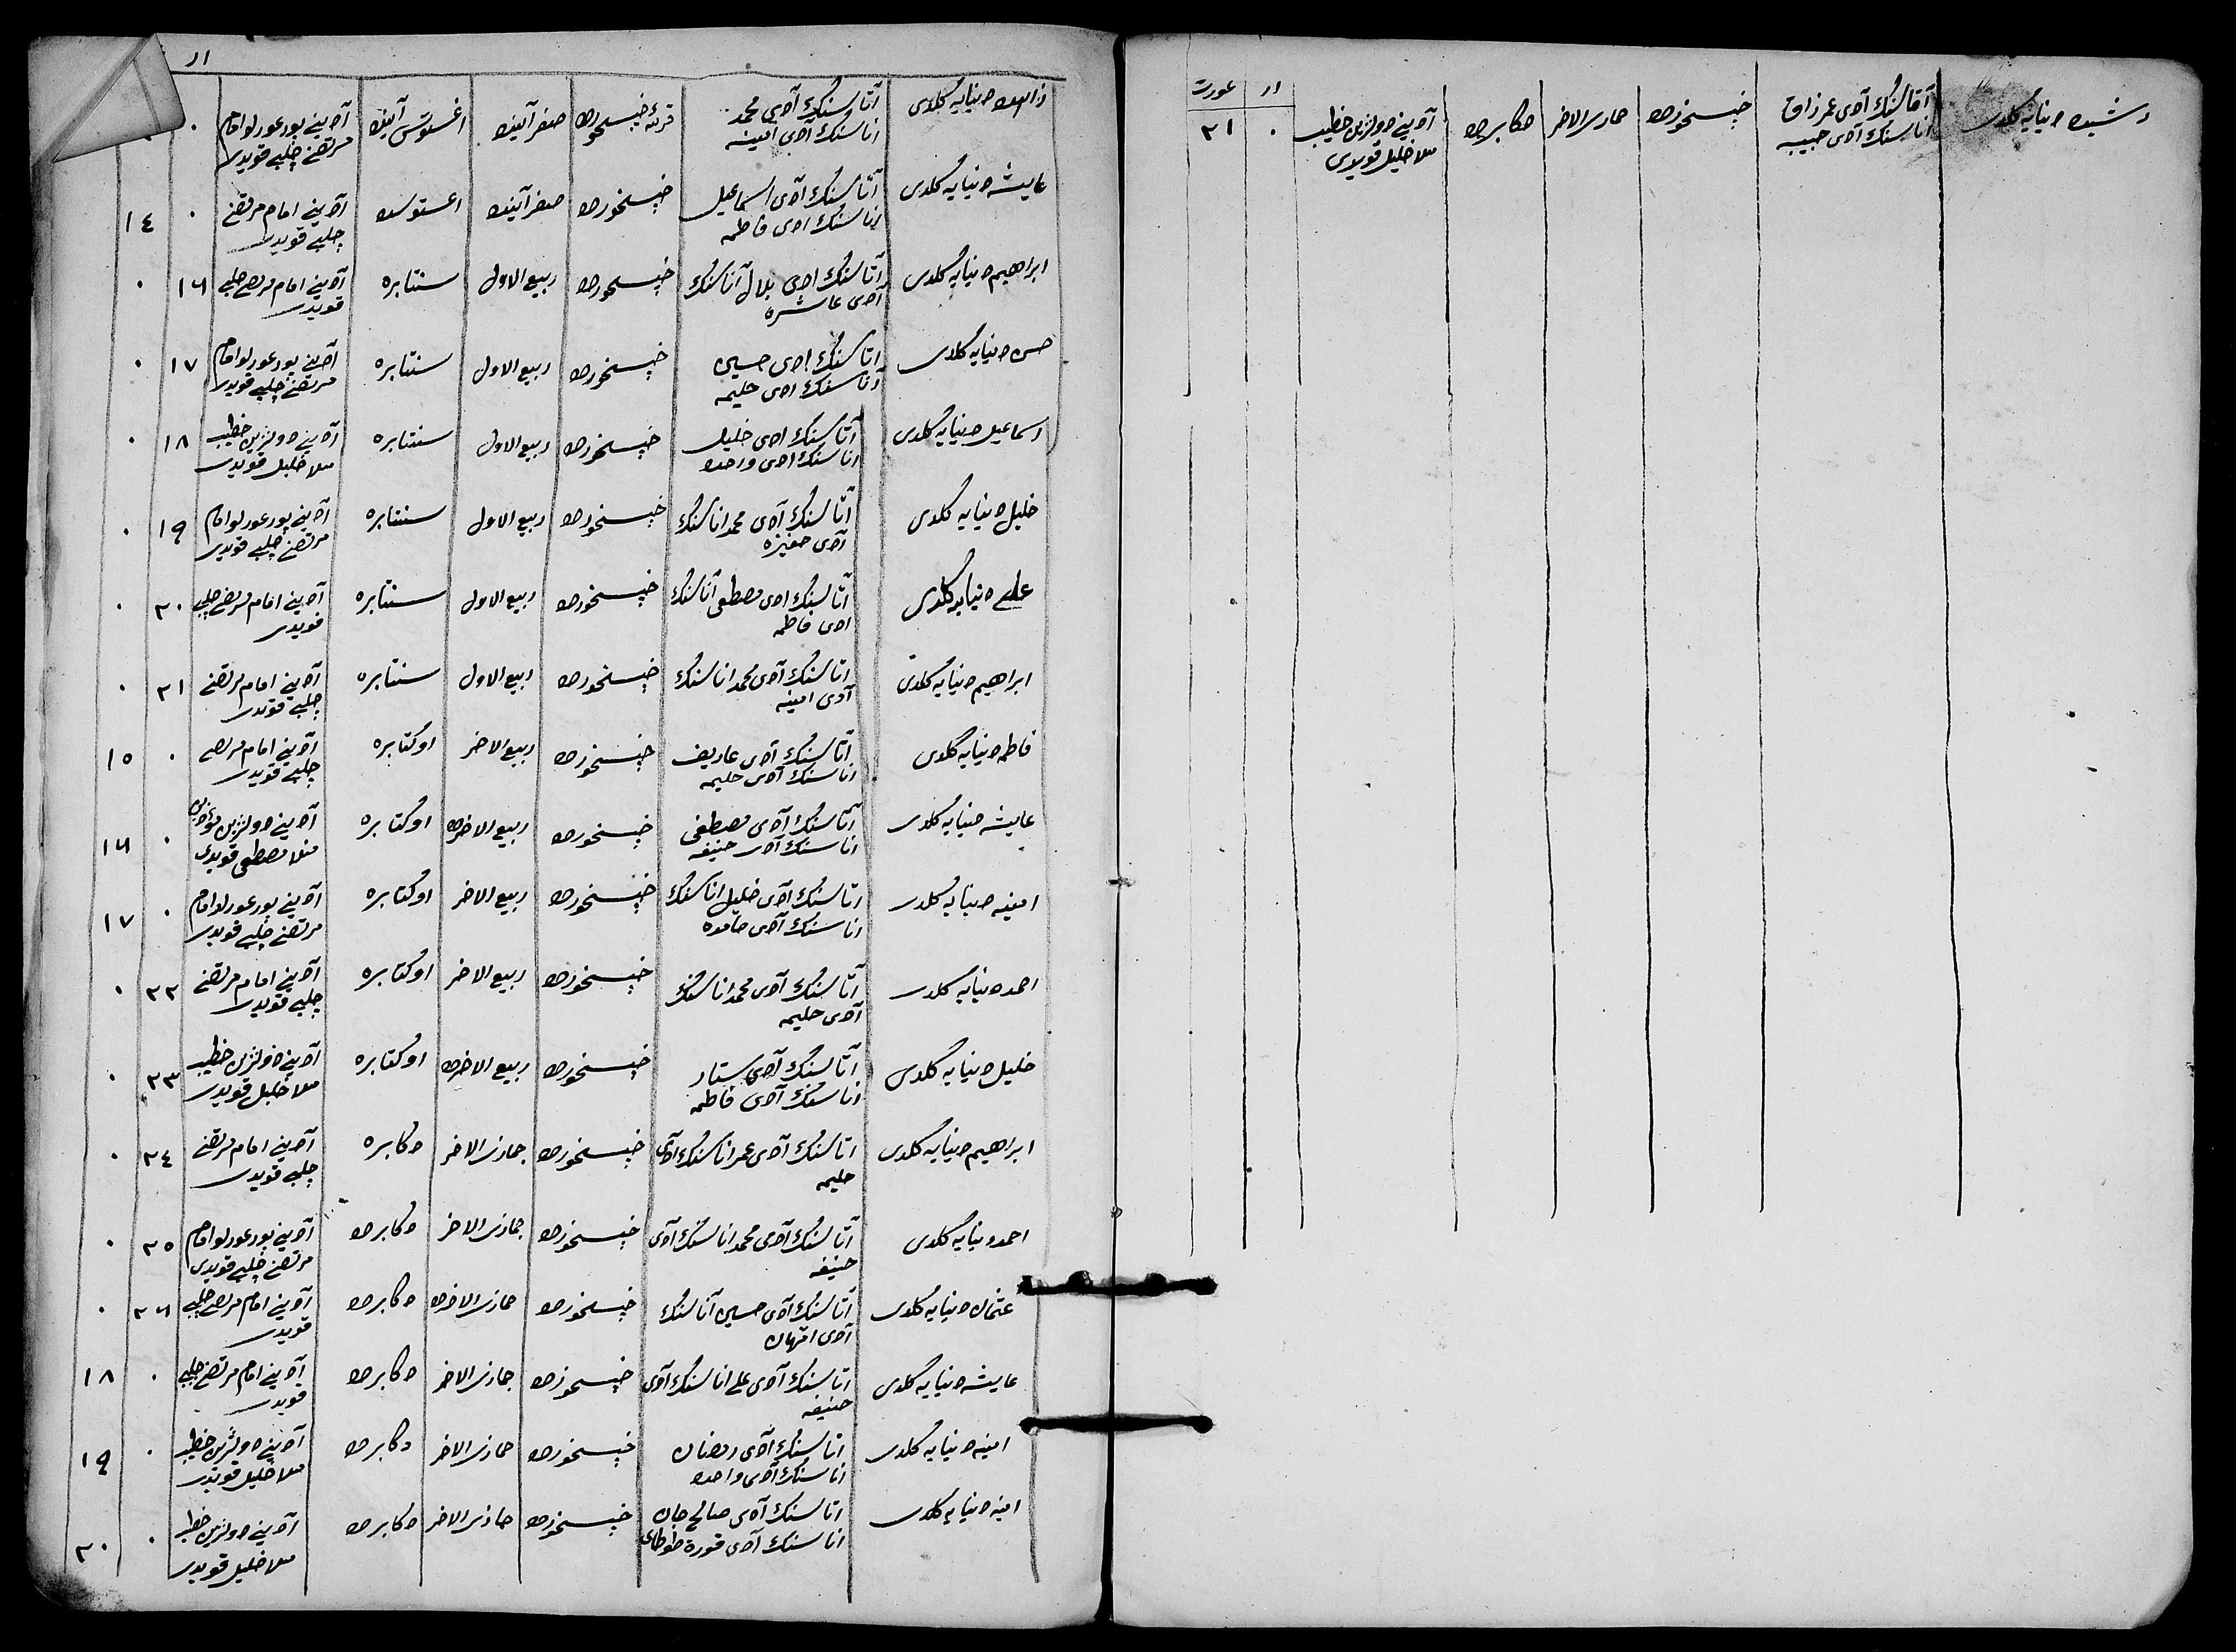 ار
عورت
رشیده دنیایه کلدی
آتاسنک آدی عمر زاق
اناسنک آدی حبیبه
خپسخورده
جمازی الاخر
دکابرده
آدینے دولزین خطیب
ملا خلیل قویدی
۰
۲۱
ار
دنیایه کلدی
آتاسنک آدی محمد
اناسنک ادی امینه
قریهٔ خپسخورده
صفر آینده
اغستوس آینده
آدینے یورعورلو امام
مرتضے چلبے قویدی
۰
عایشه دنیایه کلدی
آتاسنک آدی اسماعیل
اناسنک ادی فاطمه
خپسخورده
صفر آینده
اغستوسده
آدینے امام مرتضے
چلبے قویدی
۰
١٤
ابراهیم دنیایه کلدی
آتاسنک ادی بلال آناسنک
آدی عاشره
خپسخورده
ربیع الاول
سنتابره
آدینے امام مرتضے چلبے
قویدی
١٦
۰
حسن دنیایه کلدی
اتاسنک ادی حسین
اناسنک ادی حلیمه
خپسخورده
ربیع الاول
سنتابره
آدینے یورعورلو امام
مرتضے چلبے قویدی
١٧
۰
اسماعیل دنیایه کلدی
آتاسنک ادی خلیل
اناسنک ادی واحده
خپسخورده
ربیع الاول
سنتابره
آدینے دولزین خطیب
ملا خلیل قویدی
١٨
۰
خلیل دنیایه کلدی
آتاسنک آدی محمد اناسنک
آدی
خپسخورده
ربیع الاول
سنتابره
آدینے یورعورلو امام
مرتضے چلبے قویدی
١٩
۰
علے دنیایه کلدی
آتاسنک ادی مصطفی آناسنک
ادی فاطمه
خپسخورده
ربیع الاول
سنتابره
آدینے امام مرتضے چلبے
قویدی
۲۰
۰
ابراهیم دنیایه کلدی
اتاسنک آدی محمد اناسنک
آدی امینه
خپسخورده
ربیع الاول
سنتابره
آدینے امام مرتضے
چلبے قویدی
۲١
۰
فاطمه دنیایه کلدی
آتاسنک آدی عاریف
اناسنک آدی حلیمه
خپسخورده
ربیع الاخر
اوکتابره
آدینے امام مرتضے
چلبے قویدی
۰
١٥
عایشه دنیایه کلدی
آتاسنک آدی مصطفی
اناسنک آدی حنیفه
خپسخورده
ربیع الاخرده
اوکتابره
آدینے دولزین
منلا مصطفی قویدی
۰
١٦
امینه دنیایه کلدی
اتاسنک آدی خلیل اناسنک
اناسنک آدی
خپسخورده
ربیع الاخر
اوکتابره
آدینے یورعورلو امام
مرتضے چلبے قویدی
۰
١٧
احمد دنیایه کلدی
آتاسنک آدی محمد اناسنک
آدی حلیمه
خپسخورده
ربیع الاخر
اوکتابره
آدینے امام مرتضے
چلبے قویدی
۲۲
۰
خلیل دنیایه کلدی
آتاسنک آدی ستار
اناسنک آدی فاطمه
خپسخورده
ربیع الاخرده
اوکتابره
آدینے دولزین خطیب
ملا خلیل قویدی
۲۳
۰
ابراهیم دنیایه کلدی
اتاسنک آدی عمر اناسنک آدی
حلیمه
خپسخورده
جمازی الاخر
دکابره
آدینے امام مرتضے
چلبے قویدی
۲٤
۰
احمد دنیایه کلدی
آتاسنک آدی محمد اناسنک آدی
حنیفه
خپسخورده
جمازی الاخر
دکابرده
آدینے یورعورلو امام
مرتضے چلبے قویدی
۲٥
۰
عثمان دنیایه کلدی
آتاسنک آدی حسین آناسنک
آدی
خپسخورده
جمازی الاخرده
دکابرده
آدینے امام مرتضے چلبے
قویدی
۲٦
۰
عایشه دنیایه کلدی
اتاسنک آدی علے اناسنک آدی
حنیفه
خپسخورده
جمازی الاخر
دکابرده
آدینے امام مرتضے چلبے
قویدی
۰
١٨
امینه دنیایه کلدی
اتاسنک آدی رمضان
اناسنک آدی واحده
خپسخورده
جمازی الاخر
دکابرده
آدینے دولزین خطیب
ملا خلیل قویدی
۰
١٩
امینه دنیایه کلدی
اتاسنک آدی صالح جان
اناسنک آدی
خپسخورده
جمازی الاخر
دکابرده
آدینے دولزین خطیب
ملا خلیل قویدی
۰
۲۰